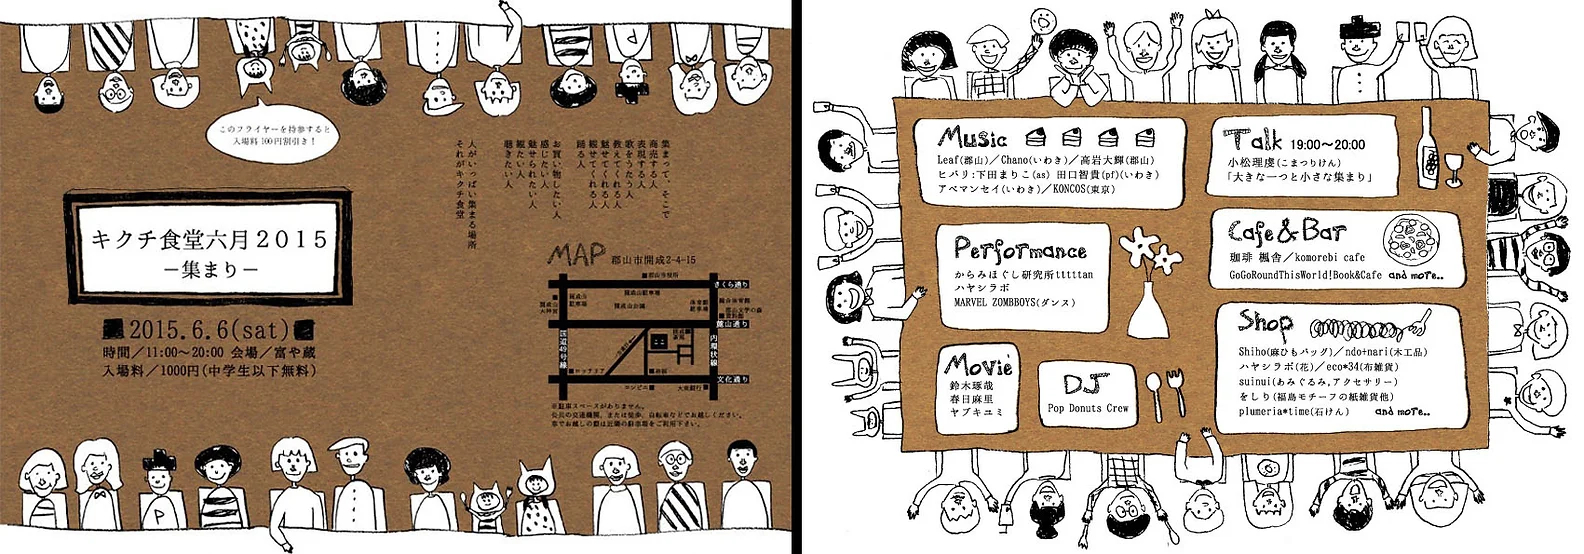 このフライヤーを持参すると
入場料100円割引き！
キクチ食堂六月2015
－集まり－
2015.6.6(sat)
時間／11:00〜20:00 会場／富や蔵
入場料／1000円(中学生以下無料)
集まって、そこで
商売する人
表現する人
歌をうたう人
教えてくれる人
魅せてくれる人
観せてくれる人
踊る人
お買い物したい人
感じたい人
魅せられたい人
観たい人
聴きたい人
人がいっぱい集まる場所
それがキクチ食堂
MAP 郡山市開成2-4-15
郡山市役所
さくら通り
開成山
大神宮
開成山
駐車場
開成山駐車場
開成山公園
体育館
駐車場
総合体育館
麓山通り
国道49号線
内環状線
文化通り
コンビニ
大東銀行
※駐車スペースがありません。
公共の交通機関、または徒歩、自転車などでお越しください。
車でお越しの際は近隣の駐車場をご利用下さい。
P
P
Music
Leaf(郡山)／Chano(いわき)／高岩大輝(郡山)
ヒバリ:下田まりこ(as) 田口智貴(pf)(いわき)
アベマンセイ(いわき)／KONCOS(東京)
Talk 19:00〜20:00
小松理虔(こまつりけん)
「大きな一つと小さな集まり」
Performance
からみほぐし研究所tttttan
ハヤシラボ
MARVEL ZOMBBOYS(ダンス)
Cafe&Bar
珈琲 楓舎／komorebi cafe
GoGoRoundThisWorld!Book&Cafe and more..
Movie
鈴木琢哉
春日麻里
ヤブキユミ
DJ
Pop Donuts Crew
Shop
Shiho(麻ひもバッグ)／ndo+nari(木工品)
ハヤシラボ(花)／eco*34(布雑貨)
suinui(あみぐるみ,アクセサリー)
をしり(福島モチーフの紙雑貨他)
plumeria*time(石けん) and more..